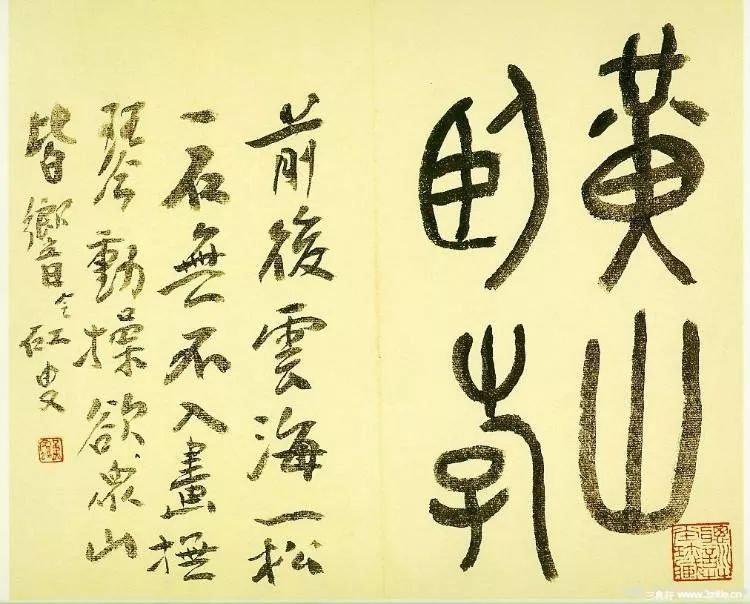 黃山
臥斿
前後雲海一松
一石無不入畫撫
琴動操欲眾山
皆響 虹叟
www.3zitie.cn